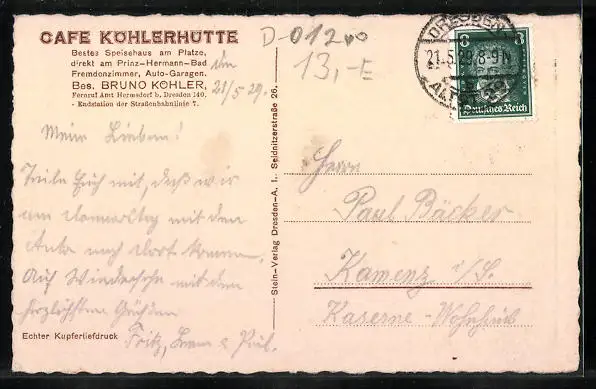 CAFE KÖHLERHÜTTE
Bestes Speisehaus am Platze,
direkt am Prinz-Hermann-Bad
Fremdenzimmer, Auto-Garagen.
Bes. BRUNO KÖHLER,
Fernruf Amt Hermsdorf b. Dresden 140.
- Endstation der Straßenbahnlinie 7.
21/5 29.
D-01200
13,-E
DRESDEN
21.5.29.8-9N
ALTST.
8 8
Deutsches Reich
Meine Lieben!
Teile Euch mit, daß wir
am Donnerstag mit dem
Auto nach dort kommen.
Auf Wiedersehn mit den
herzlichsten Grüßen
Fritz,
Echter Kupfertiefdruck
Stein-Verlag Dresden-A. 1, Seidnitzerstraße 26.
Herrn
Paul Bäcker
Kamenz i/S.
Kaserne-